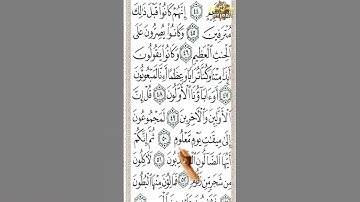 ٤٤ إِنَّهُمْ كَانُوا۟ قَبْلَ ذَٰلِكَ
مُتْرَفِينَ ٤٥ وَكَانُوا۟ يُصِرُّونَ عَلَى
ٱلْحِنثِ ٱلْعَظِيمِ ٤٦ وَكَانُوا۟ يَقُولُونَ
أَئِذَا مِتْنَا وَكُنَّا تُرَابًا وَعِظَٰمًا أَءِنَّا لَمَبْعُوثُونَ
٤٧ أَوَءَابَآؤُنَا ٱلْأَوَّلُونَ ٤٨ قُلْ إِنَّ
ٱلْأَوَّلِينَ وَٱلْءَاخِرِينَ ٤٩ لَمَجْمُوعُونَ
إِلَىٰ مِيقَٰتِ يَوْمٍ مَّعْلُومٍ ٥٠ ثُمَّ إِنَّكُمْ
أَيُّهَا ٱلضَّآلُّونَ ٱلْمُكَذِّبُونَ ٥١ لَءَاكِلُونَ
مِن شَجَرٍ مِّن زَقُّومٍ ٥٢ فَمَالِـُٔونَ مِنْهَا ٱلْبُطُونَ